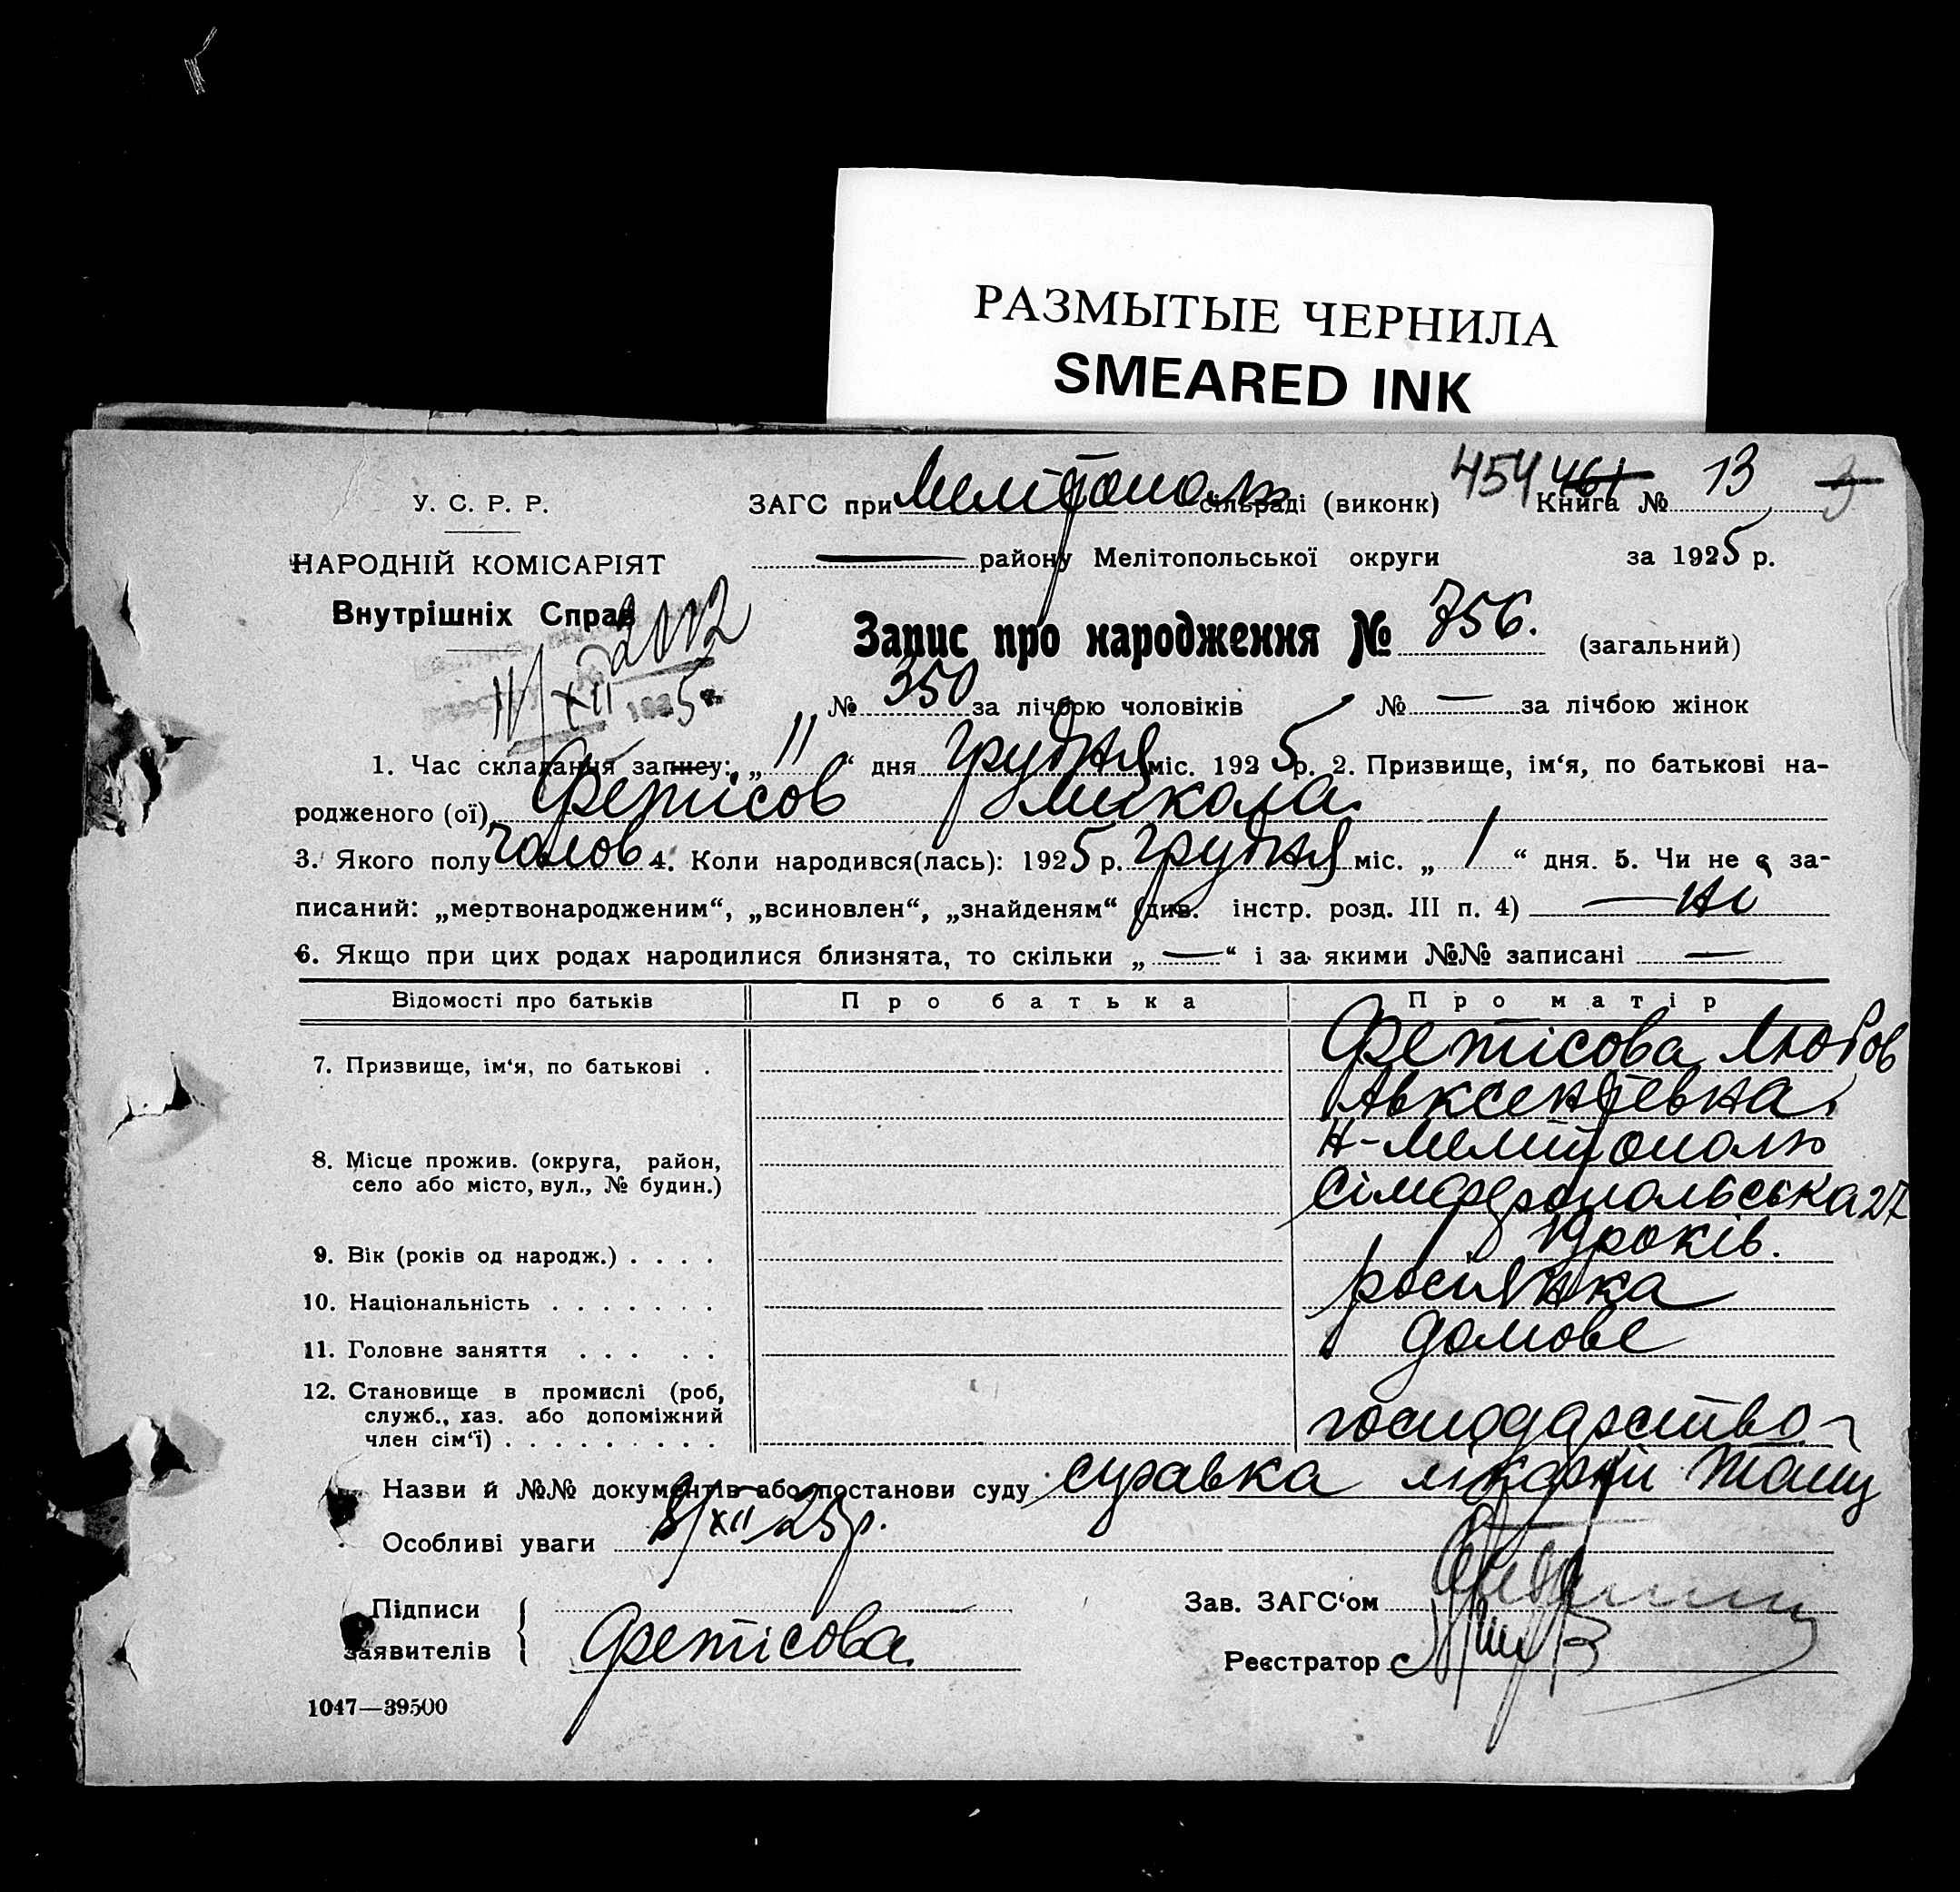 РАЗМЫТЫЕ ЧЕРНИЛА
SMEARED INK
У. С. Р. Р.
НАРОДНІЙ КОМІСАРІЯТ
Внутрішніх Справ
ЗАГС при Мелітополь сільраді (виконк) 454 461 Книга № 13
— району Мелітопольської округи за 1925 р.
Запис про народження № 756. (загальний)
11/XII 1925
№ 350 за лічбою чоловіків № — за лічбою жінок
1. Час складання запису: „11“ дня грудня міс. 1925 р. 2. Призвище, ім‘я, по батькові на-
родженого (ої) Фетісов Микола.
3. Якого полу чолов 4. Коли народився(лась): 1925 р. грудня міс. „1“ дня. 5. Чи не є за-
писаний: „мертвонародженим“, „всиновлен“, „знайденям“ (див. інстр. розд. III п. 4) — ні
6. Якщо при цих родах народилися близнята, то скільки „—“ і за якими №№ записані —
Відомості про батьків Про батька Про матір
7. Призвище, ім‘я, по батькові . Фетісова Любов
Авксентіевна.
8. Місце прожив. (округа, район, м-Мелітополь
село або місто, вул., № будин.) Сімферопольська 27
9. Вік (років од народж.) . . . . 19 років.
10. Національність . . . . . . . росіянка
11. Головне заняття . . . . . домове
12. Становище в промислі (роб,
служб., хаз. або допоміжний господарство
член сім‘ї) . . . . . . . . .
Назви й №№ документів або постанови суду справка лікарні
Особливі уваги 8/XII 25р.
Підписи
заявителів Фетісова.
Зав. ЗАГС‘ом
Реєстратор
1047—39500